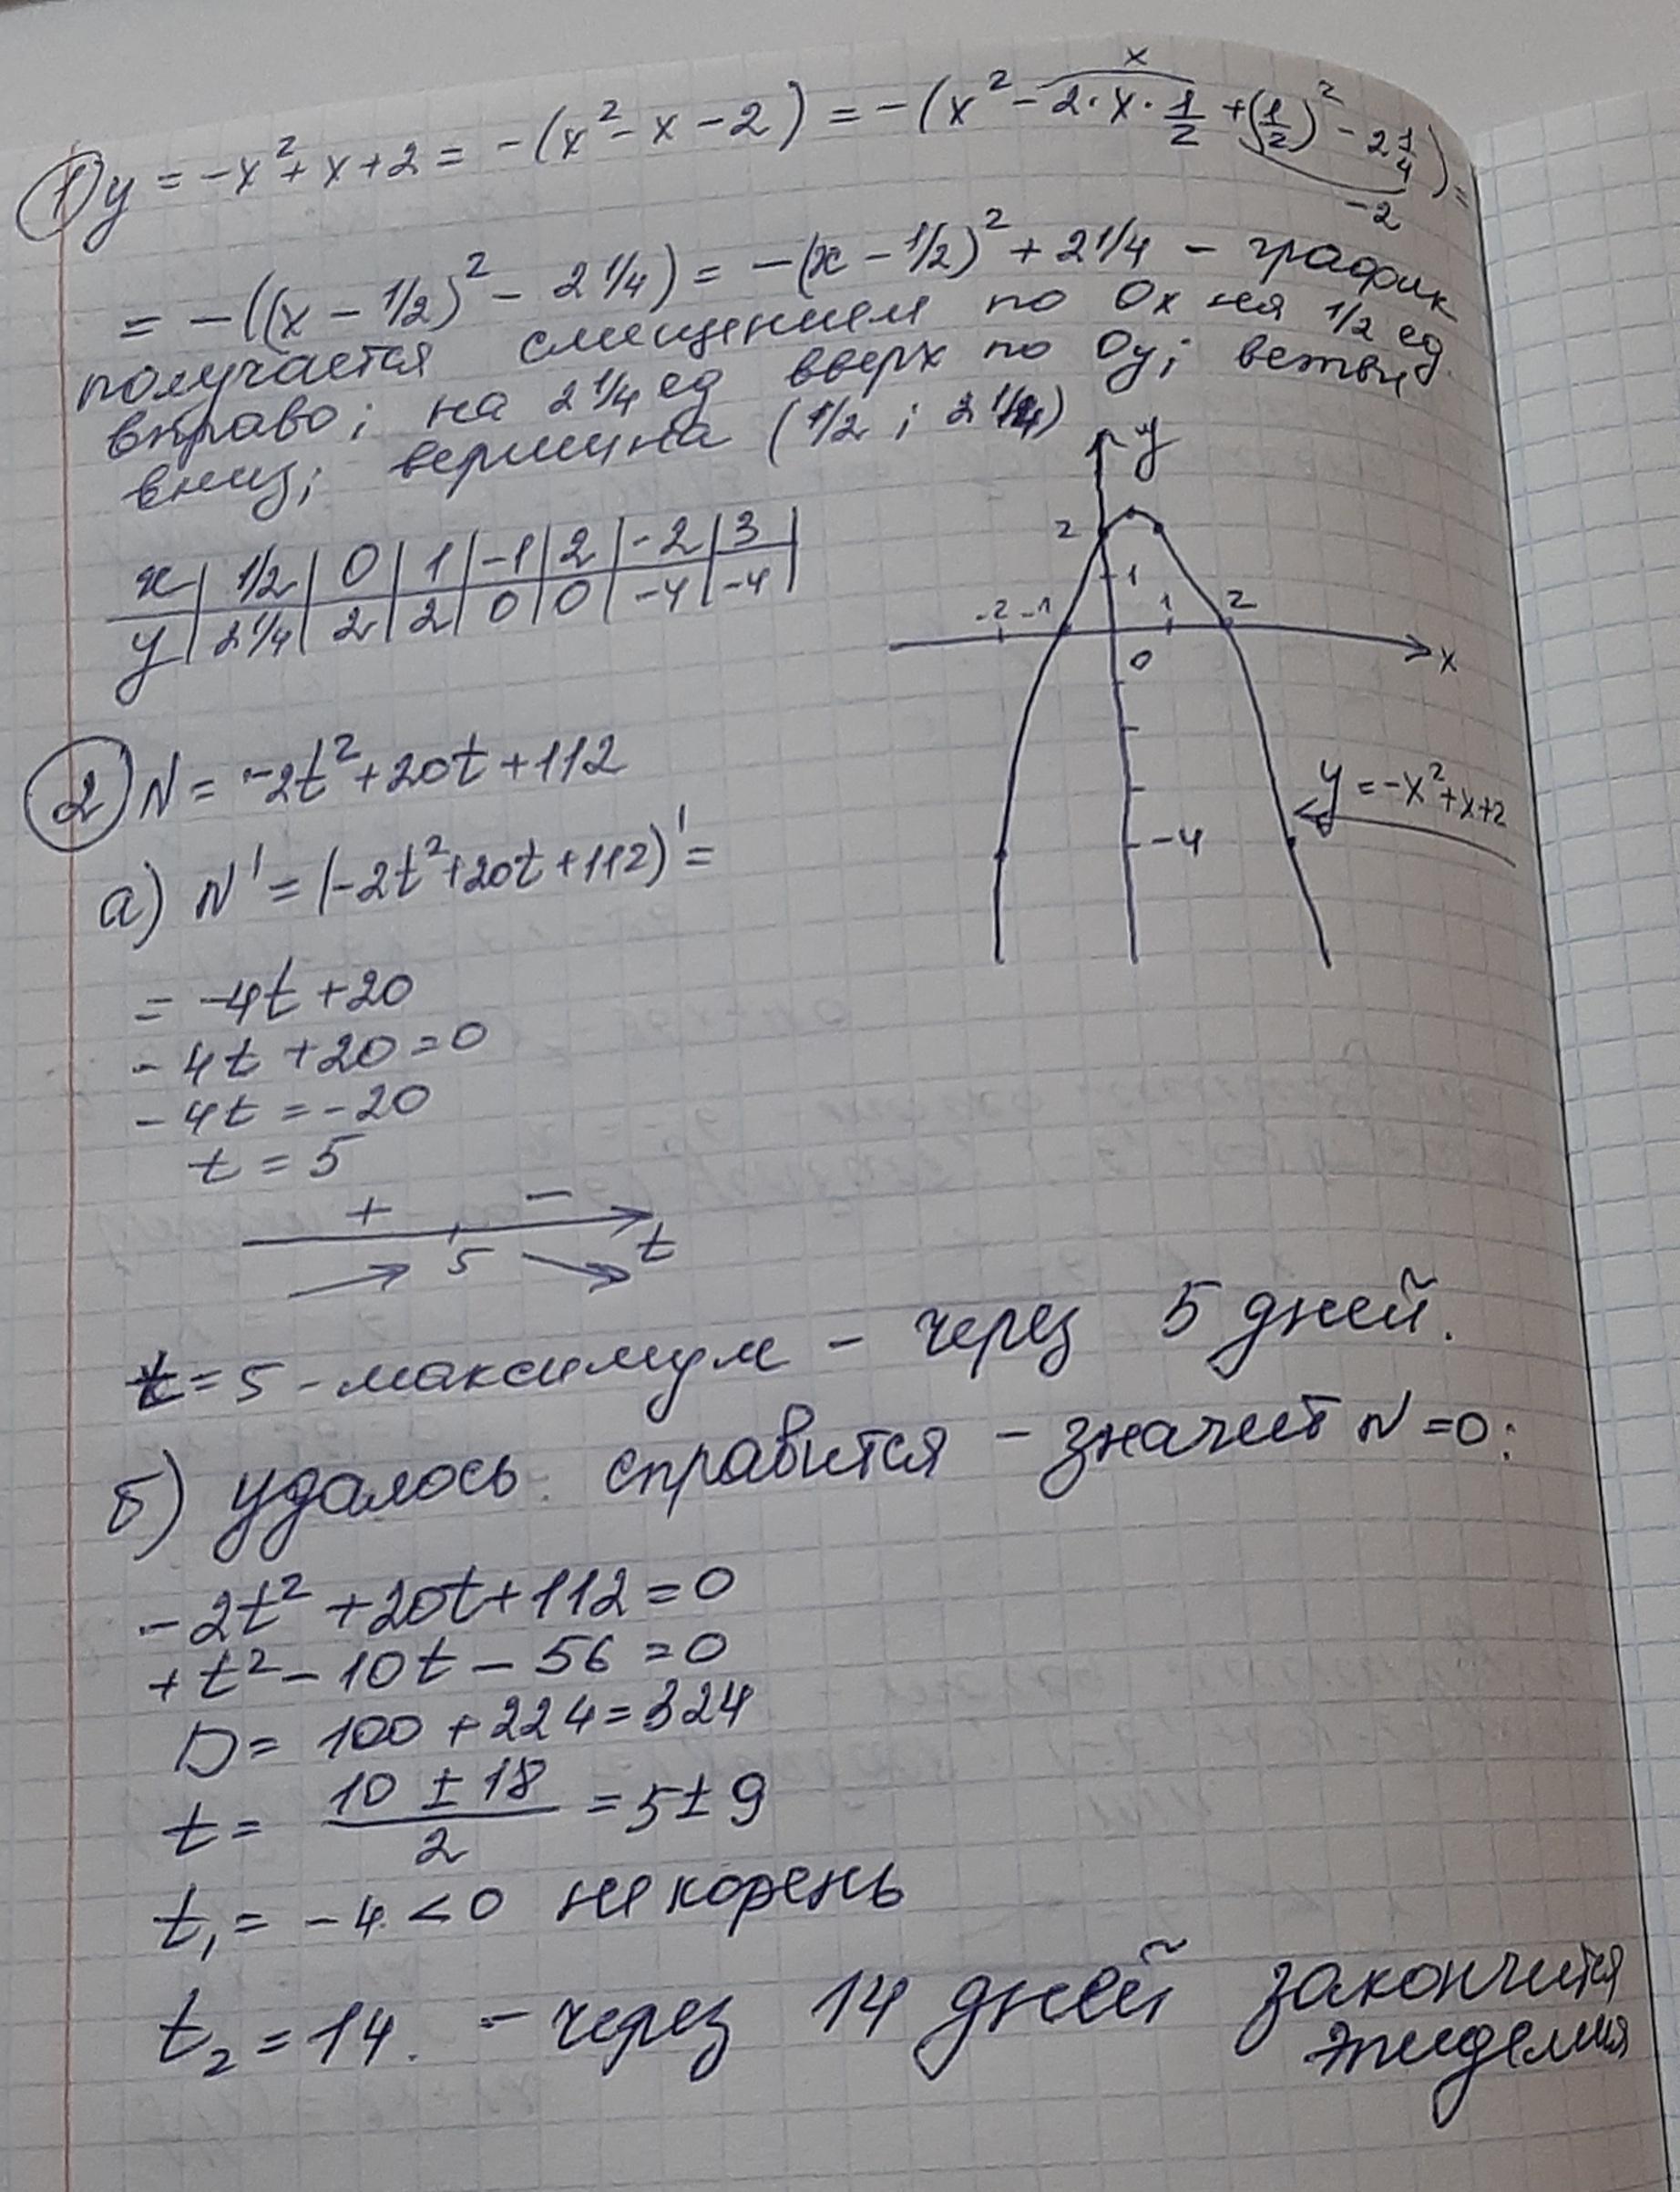 1) y = -x² + x + 2 = -(x² - x - 2) = -(x² - 2·x·1/2 + (1/2)² - 2 1/4) =
x
-2
= -((x - 1/2)² - 2 1/4) = -(x - 1/2)² + 2 1/4 - график
получается смещением по Ox на 1/2 ед
вправо; на 2 1/4 ед вверх по Oy; ветви
вниз; вершина (1/2 ; 2 1/4)
x | 1/2 | 0 | 1 | -1 | 2 | -2 | 3 |
y | 2 1/4 | 2 | 2 | 0 | 0 | -4 | -4 |
y
2
1
-2 -1 1 2
0 x
y = -x² + x + 2
-4
2) N = -2t² + 20t + 112
а) N' = (-2t² + 20t + 112)' =
= -4t + 20
-4t + 20 = 0
-4t = -20
t = 5
+ -
5 t
t = 5 - максимум - через 5 дней.
б) удалось справится - значит N = 0:
-2t² + 20t + 112 = 0
+t² - 10t - 56 = 0
D = 100 + 224 = 324
t = (10 ± 18)/2 = 5 ± 9
t₁ = -4 < 0 не корень
t₂ = 14. - через 14 дней закончится
эпидемия